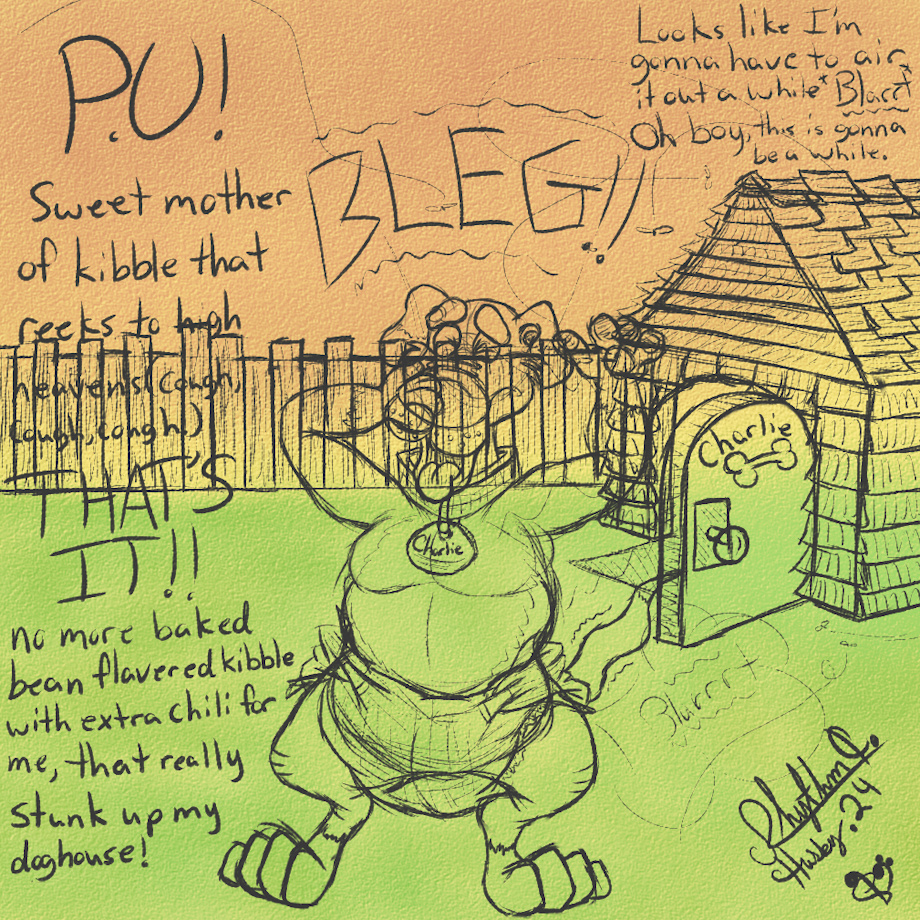 P.U!
Sweet mother
of kibble that
reeks to high
heavens(cough,
cough, cough.)
THAT'S
IT!!
no more baked
bean flavered kibble
with extra chili for
me, that really
stunk up my
doghouse!
BLEG!!
Looks like I'm
gonna have to air
it out a while *Blarrt*
Oh boy, this is gonna
be a while.
Charlie
Charlie
Blurrrt
Rhythm Q.
Husky.24